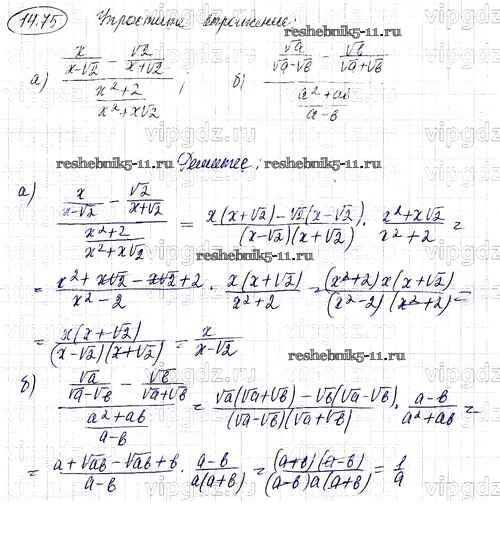 14.75 Упростите выражение:
а) (x/(x-√2) - √2/(x+√2)) / ((x²+2)/(x²+x√2)); б) (√a/(√a-√b) - √b/(√a+√b)) / ((a²+ab)/(a-b))
reshebnik5-11.ru
reshebnik5-11.ru
Решение:
reshebnik5-11.ru
а) (x/(x-√2) - √2/(x+√2)) / ((x²+2)/(x²+x√2)) = (x(x+√2)-√2(x-√2))/((x-√2)(x+√2)) · (x²+x√2)/(x²+2) =
= (x²+x√2-x√2+2)/(x²-2) · x(x+√2)/(x²+2) = (x²+2)x(x+√2)/((x²-2)(x²+2)) =
= x(x+√2)/((x-√2)(x+√2)) = x/(x-√2)
reshebnik5-11.ru
б) (√a/(√a-√b) - √b/(√a+√b)) / ((a²+ab)/(a-b)) = (√a(√a+√b)-√b(√a-√b))/((√a-√b)(√a+√b)) · (a-b)/(a²+ab) =
= (a+√ab-√ab+b)/(a-b) · (a-b)/(a(a+b)) = (a+b)(a-b)/((a-b)a(a+b)) = 1/a